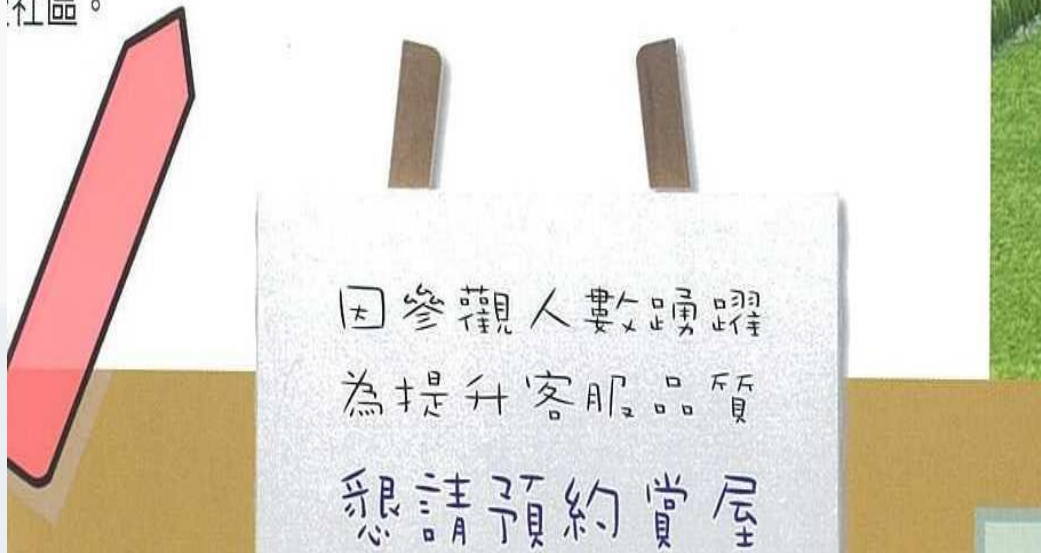 社區。
因參觀人數踴躍
為提升客服品質
懇請預約賞屋